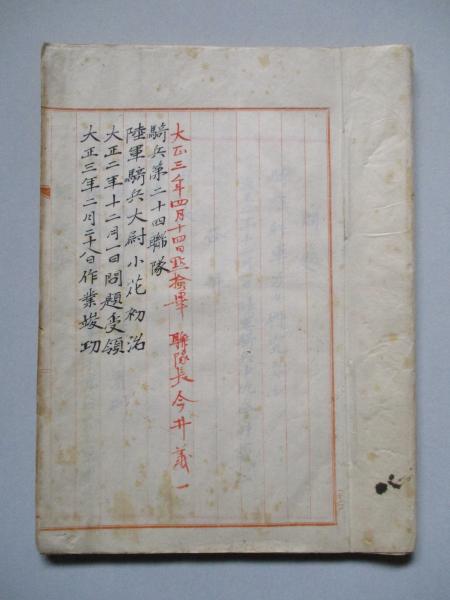 大正三年四月十四日点検畢 聯隊長今井義一
騎兵第二十四聯隊
陸軍騎兵大尉小花初治
大正二年十二月一日問題受領
大正三年二月二十八日作業竣功